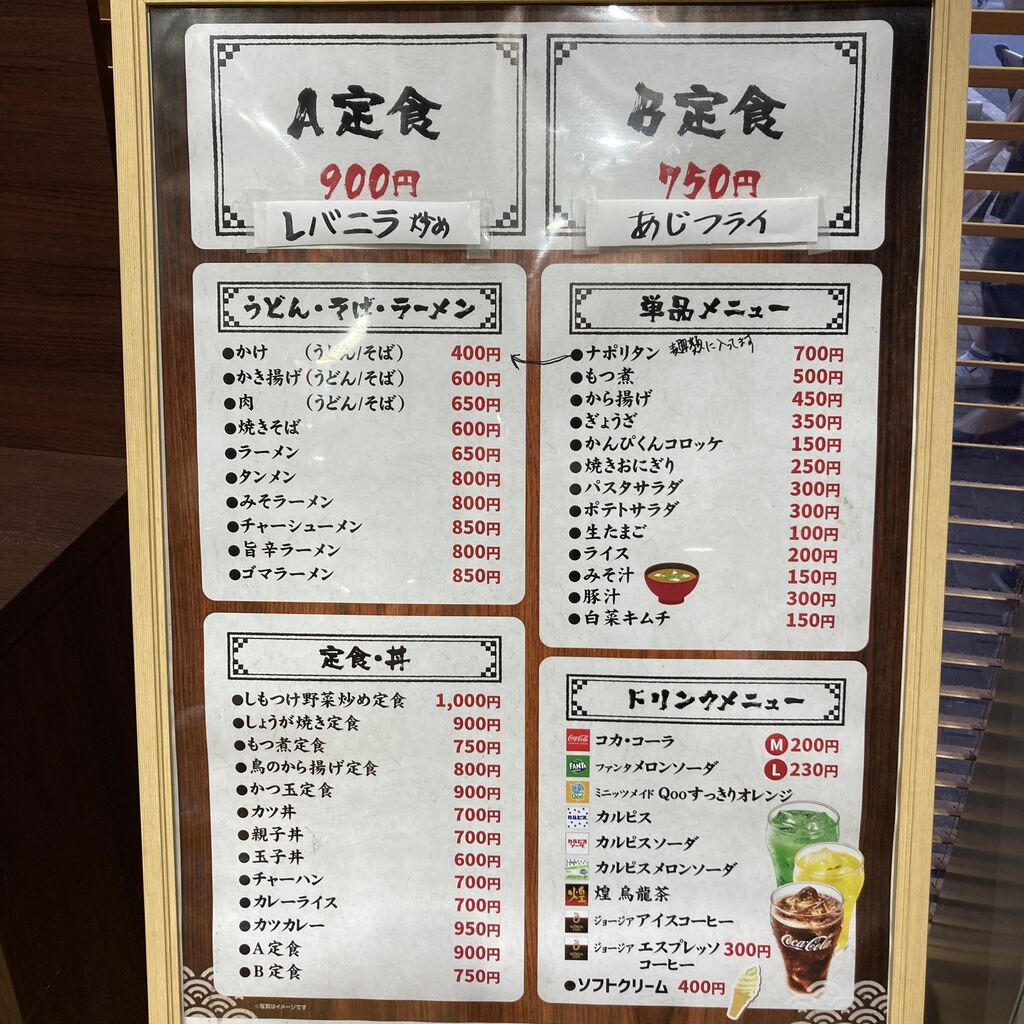 A定食
900円
レバニラ炒め
B定食
750円
あじフライ
うどん・そば・ラーメン
●かけ (うどん/そば) 400円
●かき揚げ(うどん/そば) 600円
●肉 (うどん/そば) 650円
●焼きそば 600円
●ラーメン 650円
●タンメン 800円
●みそラーメン 800円
●チャーシューメン 850円
●旨辛ラーメン 800円
●ゴマラーメン 850円
単品メニュー
●ナポリタン 麺類に入ってます 700円
●もつ煮 500円
●から揚げ 450円
●ぎょうざ 350円
●かんぴくんコロッケ 150円
●焼きおにぎり 250円
●パスタサラダ 300円
●ポテトサラダ 300円
●生たまご 100円
●ライス 200円
●みそ汁 150円
●豚汁 300円
●白菜キムチ 150円
定食・丼
●しもつけ野菜炒め定食 1,000円
●しょうが焼き定食 900円
●もつ煮定食 750円
●鳥のから揚げ定食 800円
●かつ玉定食 900円
●カツ丼 700円
●親子丼 700円
●玉子丼 600円
●チャーハン 700円
●カレーライス 700円
●カツカレー 950円
●A定食 900円
●B定食 750円
※写真はイメージです
ドリンクメニュー
Coca-Cola コカ・コーラ M 200円
FANTA ファンタメロンソーダ L 230円
Qoo ミニッツメイド Qooすっきりオレンジ
カルピス カルピス
カルピスソーダ カルピスソーダ
カルピスメロンソーダ
煌 煌 烏龍茶
ジョージア アイスコーヒー
ジョージア エスプレッソ 300円
コーヒー
●ソフトクリーム 400円
Coca-Cola